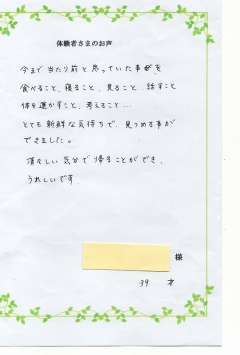 体験者さまのお声
今まで当たり前と思っていた事を
食べること、寝ること、見ること、話すこと
体を運かすこと、考えること…
とても新鮮な気持ちで、見つめる事が
できました。
清々しい気分で帰ることができ、
うれしいです。
様
39 才